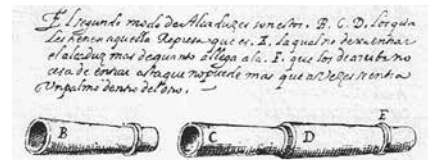 El segundo modo de Alcaduzes son estos. B. C. D. los qua
les tienen aquella Represa que es. E. la qual no dexa entrar
el alcaduz mas de quanto allega ala. E. que los de arriba no
cesa de entrar asta que no puede mas que a vezes entra
Un palmo dentro del otro.
B C D E